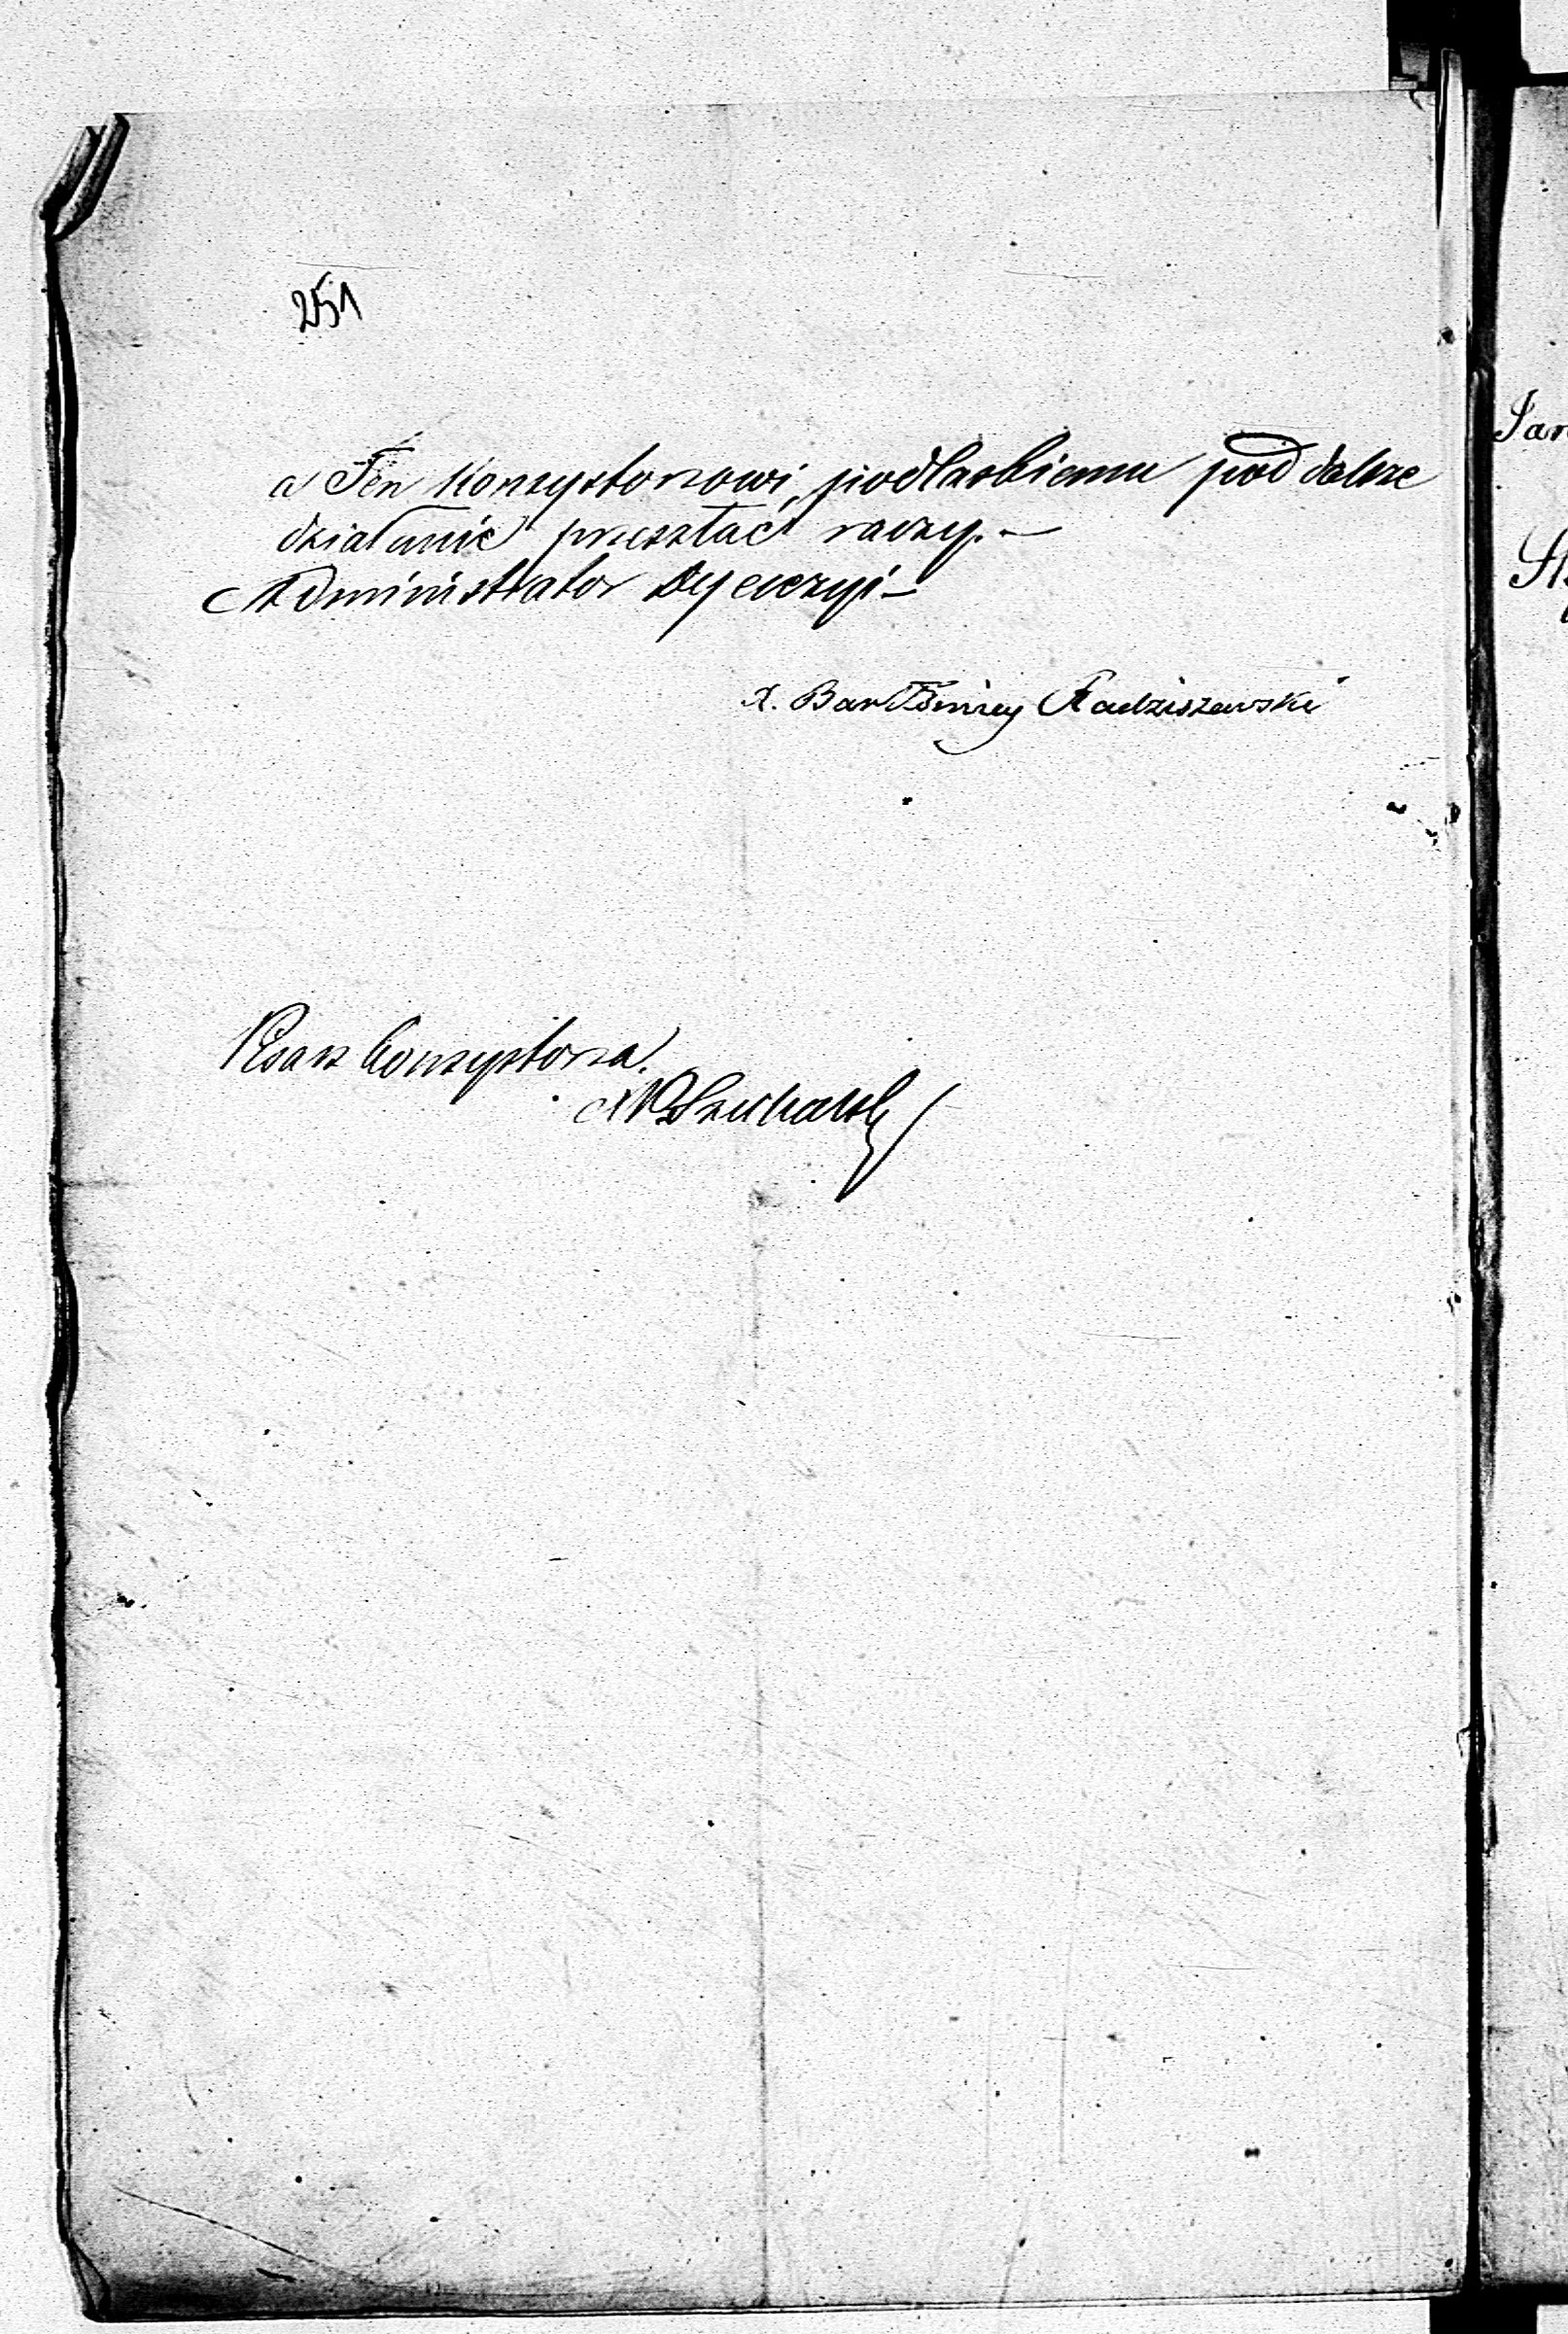 251
a Ten Konsystorzowi podlaskiemu pod dalsze
działanie przesztać raczy. –
Administrator Dyecezyi –
X. Bartłomiey Radziszewski
Pisarz Konsystorza.